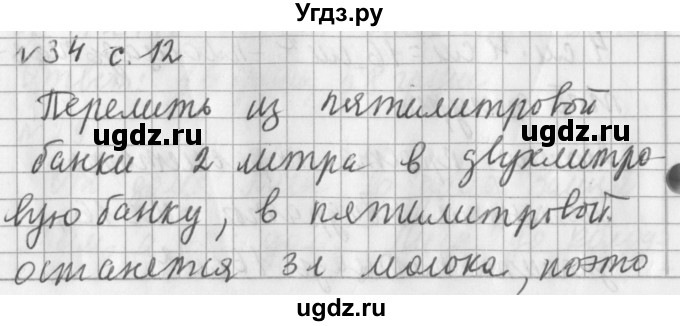 Угдз.ру
№34 с. 12
Перелить из пятилитровой
ugdz.ru ugdz.ru
банки 2 литра в двухлитро-
вую банку, в пятилитровой
останется 3л молока, поэто
ugdz.ru